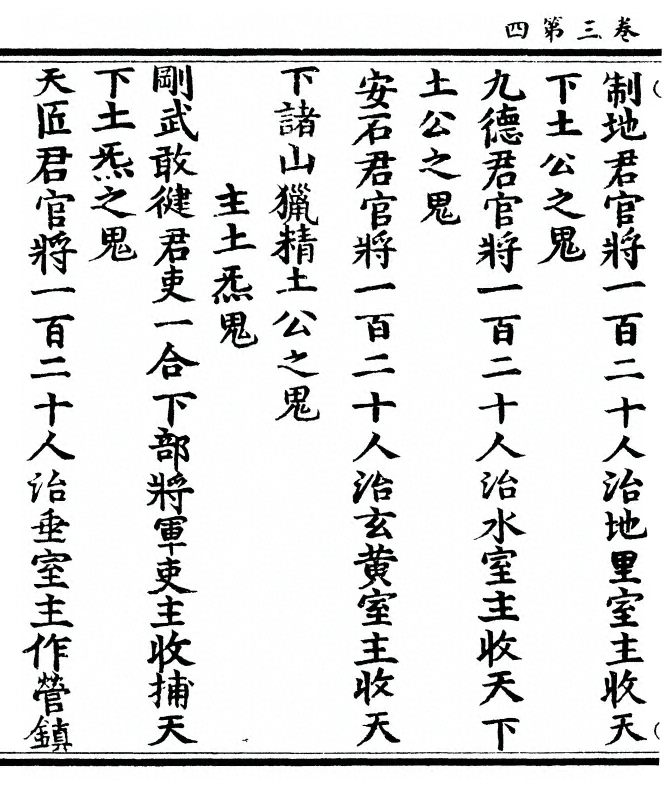 卷三第四
制地君官將一百二十人治地里室主收天
下土公之鬼
九德君官將一百二十人治水室主收天下
土公之鬼
安石君官將一百二十人治玄黄室主收天
下諸山獵精土公之鬼
主土炁鬼
剛武敢健君吏一合下部將軍吏主收捕天
下土炁之鬼
天匠君官將一百二十人治垂室主作營鎮